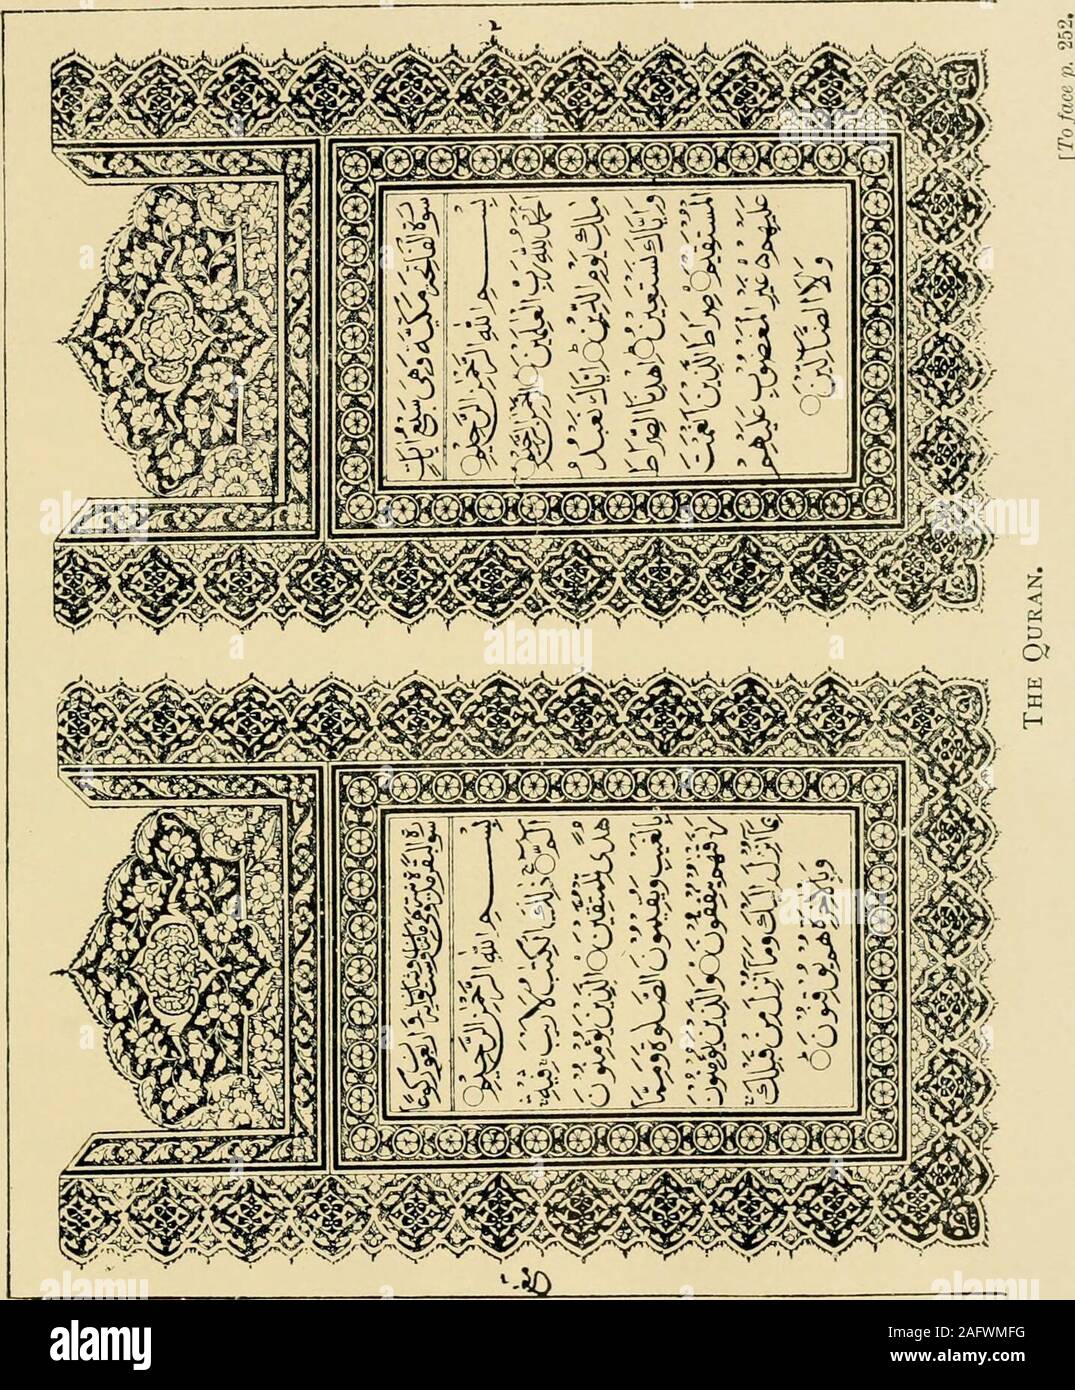 [To face p. 252.
٢
سُورَةُ الْفَاتِحَةِ مَكِّيَّةٌ وَهِىَ سَبْعُ اٰيَاتٍ
بِسْمِ اللّٰهِ الرَّحْمٰنِ الرَّحِيْمِ
اَلْحَمْدُ لِلّٰهِ رَبِّ الْعٰلَمِيْنَ ○ الرَّحْمٰنِ الرَّحِيْمِ ○
مٰلِكِ يَوْمِ الدِّيْنِ ○ اِيَّاكَ نَعْبُدُ
وَاِيَّاكَ نَسْتَعِيْنُ ○ اِهْدِنَا الصِّرَاطَ
الْمُسْتَقِيْمَ ○ صِرَاطَ الَّذِيْنَ اَنْعَمْتَ
عَلَيْهِمْ ەۙ غَيْرِ الْمَغْضُوْبِ عَلَيْهِمْ
وَلَا الضَّآلِّيْنَ ○
سورة البقرة
بِسْمِ اللّٰهِ الرَّحْمٰنِ الرَّحِيْمِ ○
الٓمّٓ ○ ذٰلِكَ الْكِتٰبُ لَا رَيْبَ فِيْهِ
هُدًى لِّلْمُتَّقِيْنَ ○ الَّذِيْنَ يُؤْمِنُوْنَ
بِالْغَيْبِ وَيُقِيْمُوْنَ الصَّلٰوةَ وَمِمَّا
رَزَقْنٰهُمْ يُنْفِقُوْنَ ○ وَالَّذِيْنَ يُؤْمِنُوْنَ
بِمَآ اُنْزِلَ اِلَيْكَ وَمَآ اُنْزِلَ مِنْ قَبْلِكَ
وَبِالْاٰخِرَةِ هُمْ يُوْقِنُوْنَ ○
THE QURAN.
alamy
Image ID: 2AFWMFG
www.alamy.com